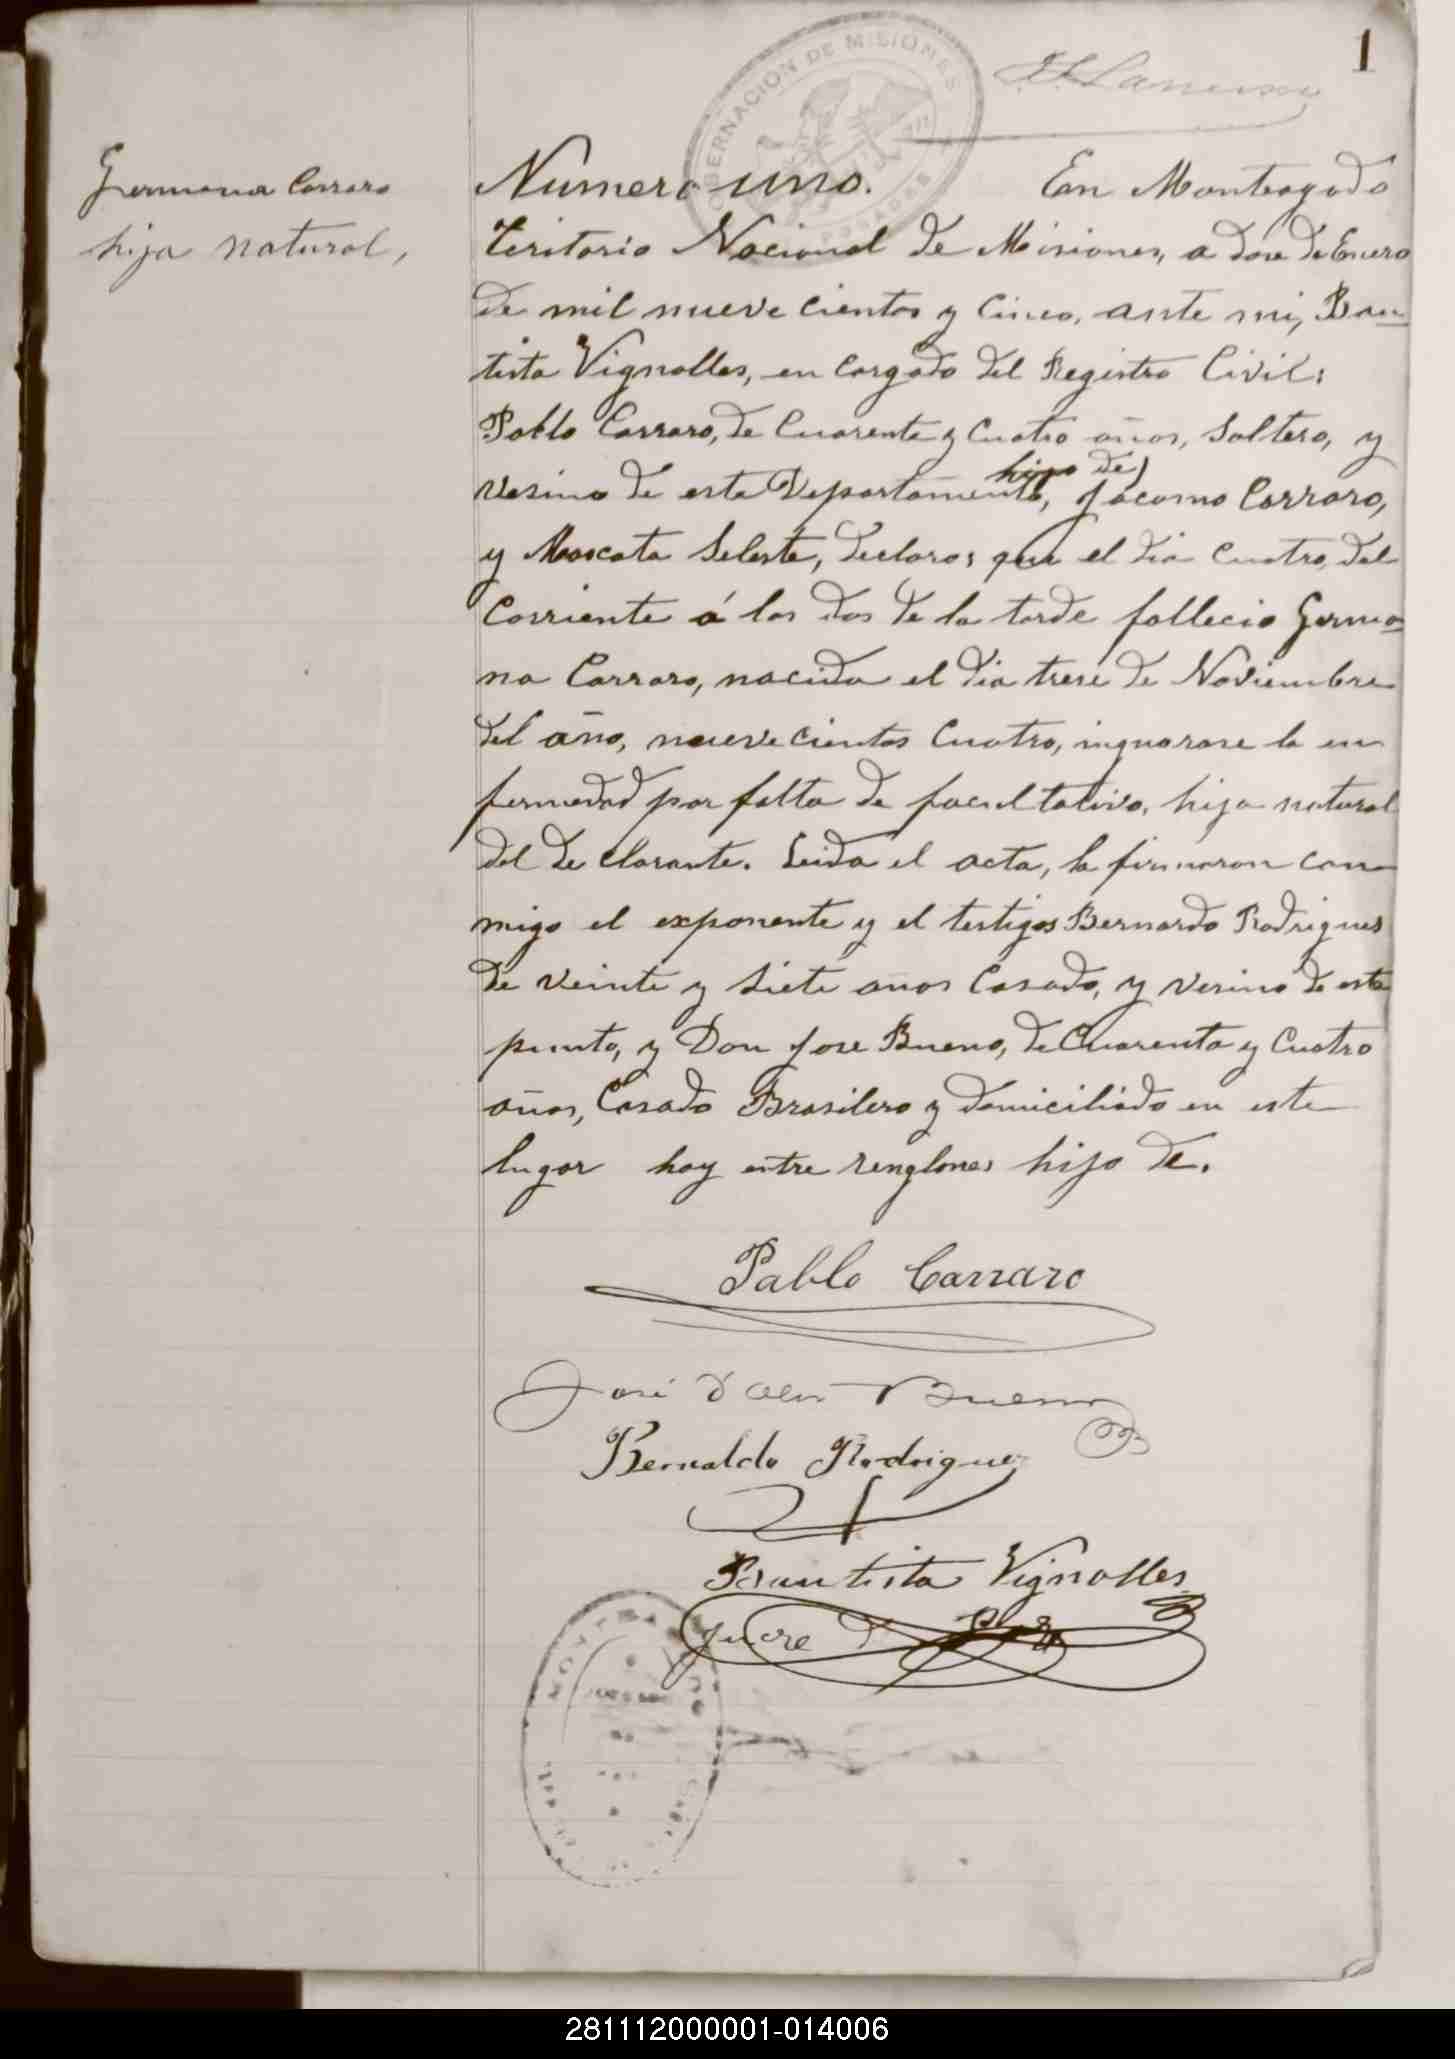 1
GOBERNACION DE MISIONES
POSADAS
Germana Carraro
hija natural,
Numero uno. En Monteagudo
Teritorio Nacional de Misiones, a dose de Enero
de mil nueve cientos y cinco, ante mi, Bau
tista Vignolles, en cargado del Registro Civil:
Pablo Carraro, de Cuarenta y Cuatro años, Soltero, y
vesino de este Departamento, hijo de Jacomo Carraro,
y Moscata Seleste, declaro; que el dia cuatro, del
Corriente á las dos de la tarde fallecio Germa=
na Carraro, nacida el dia trese de Noviembre
del año, nueve cientos Cuatro, ingnorase la en
fermedad por falta de facultativo, hija natural
del de clarante. Leida el acta, la firmaron con
migo el exponente y el testigos Bernardo Rodrigues
de veinte y siete años Casado, y vesino de este
punto, y Don Jose Bueno, de Cuarenta y Cuatro
años, Casado Brasilero y domiciliado en este
lugar hay entre renglones hijo de.
Pablo Carraro
José Bueno
Bernaldo Rodrigues
Bautista Vignolles
Juese d Paz
281112000001-014006